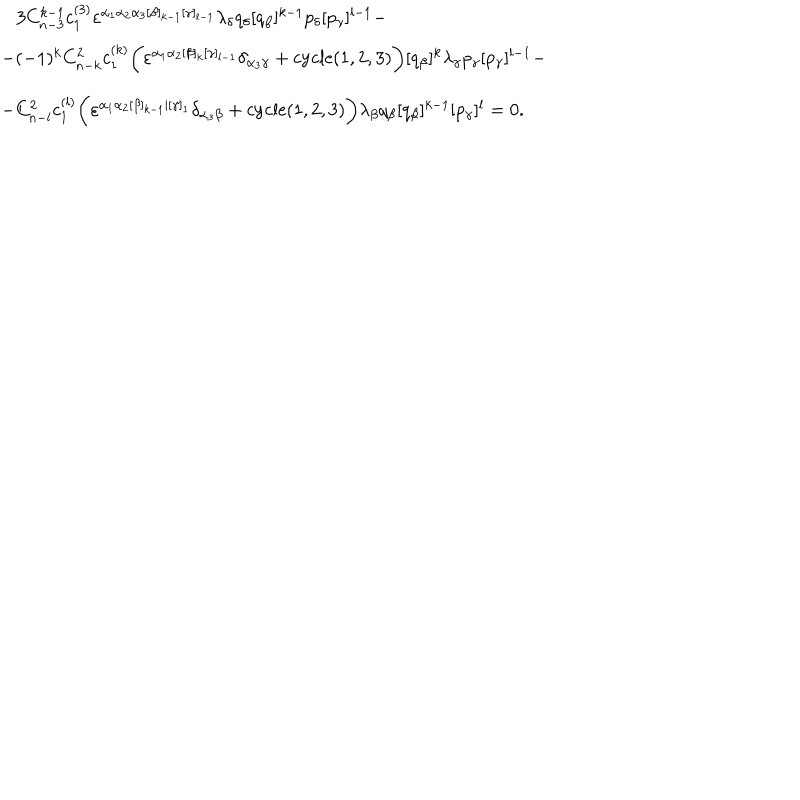 3C_{n-3}^{k-1} c_1^{(3)} ε^{α_1α_2α_3[β]_{k-1}[γ]_{l-1}} λ_δ q_δ [q_β]^{k-1} p_δ [p_γ]^{l-1} −
−(−1)^k C_{n-k}^2 c_1^{(k)} (ε^{α_1α_2[β]_k[γ]_{l-1}} δ_{α_3γ} + cycle(1, 2, 3)) [q_β]^k λ_γ p_γ [p_γ]^{l-1} −
−C_{n-l}^2 c_1^{(l)} (ε^{α_1α_2[β]_{k-1}|[γ]_1} δ_{α_3β} + cycle(1, 2, 3)) λ_β q_β [q_β]^{k-1} [p_γ]^l = 0.